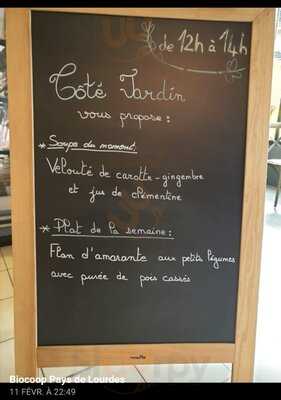 de 12h à 14h
Côté Jardin
vous propose :
* Soupe du moment:
Velouté de carotte-gingembre
et jus de clémentine
* Plat de la semaine :
Flan d'amarante aux petits légumes
avec purée de pois cassés
Biocoop Pays de Lourdes
11 FÉVR. À 22:49